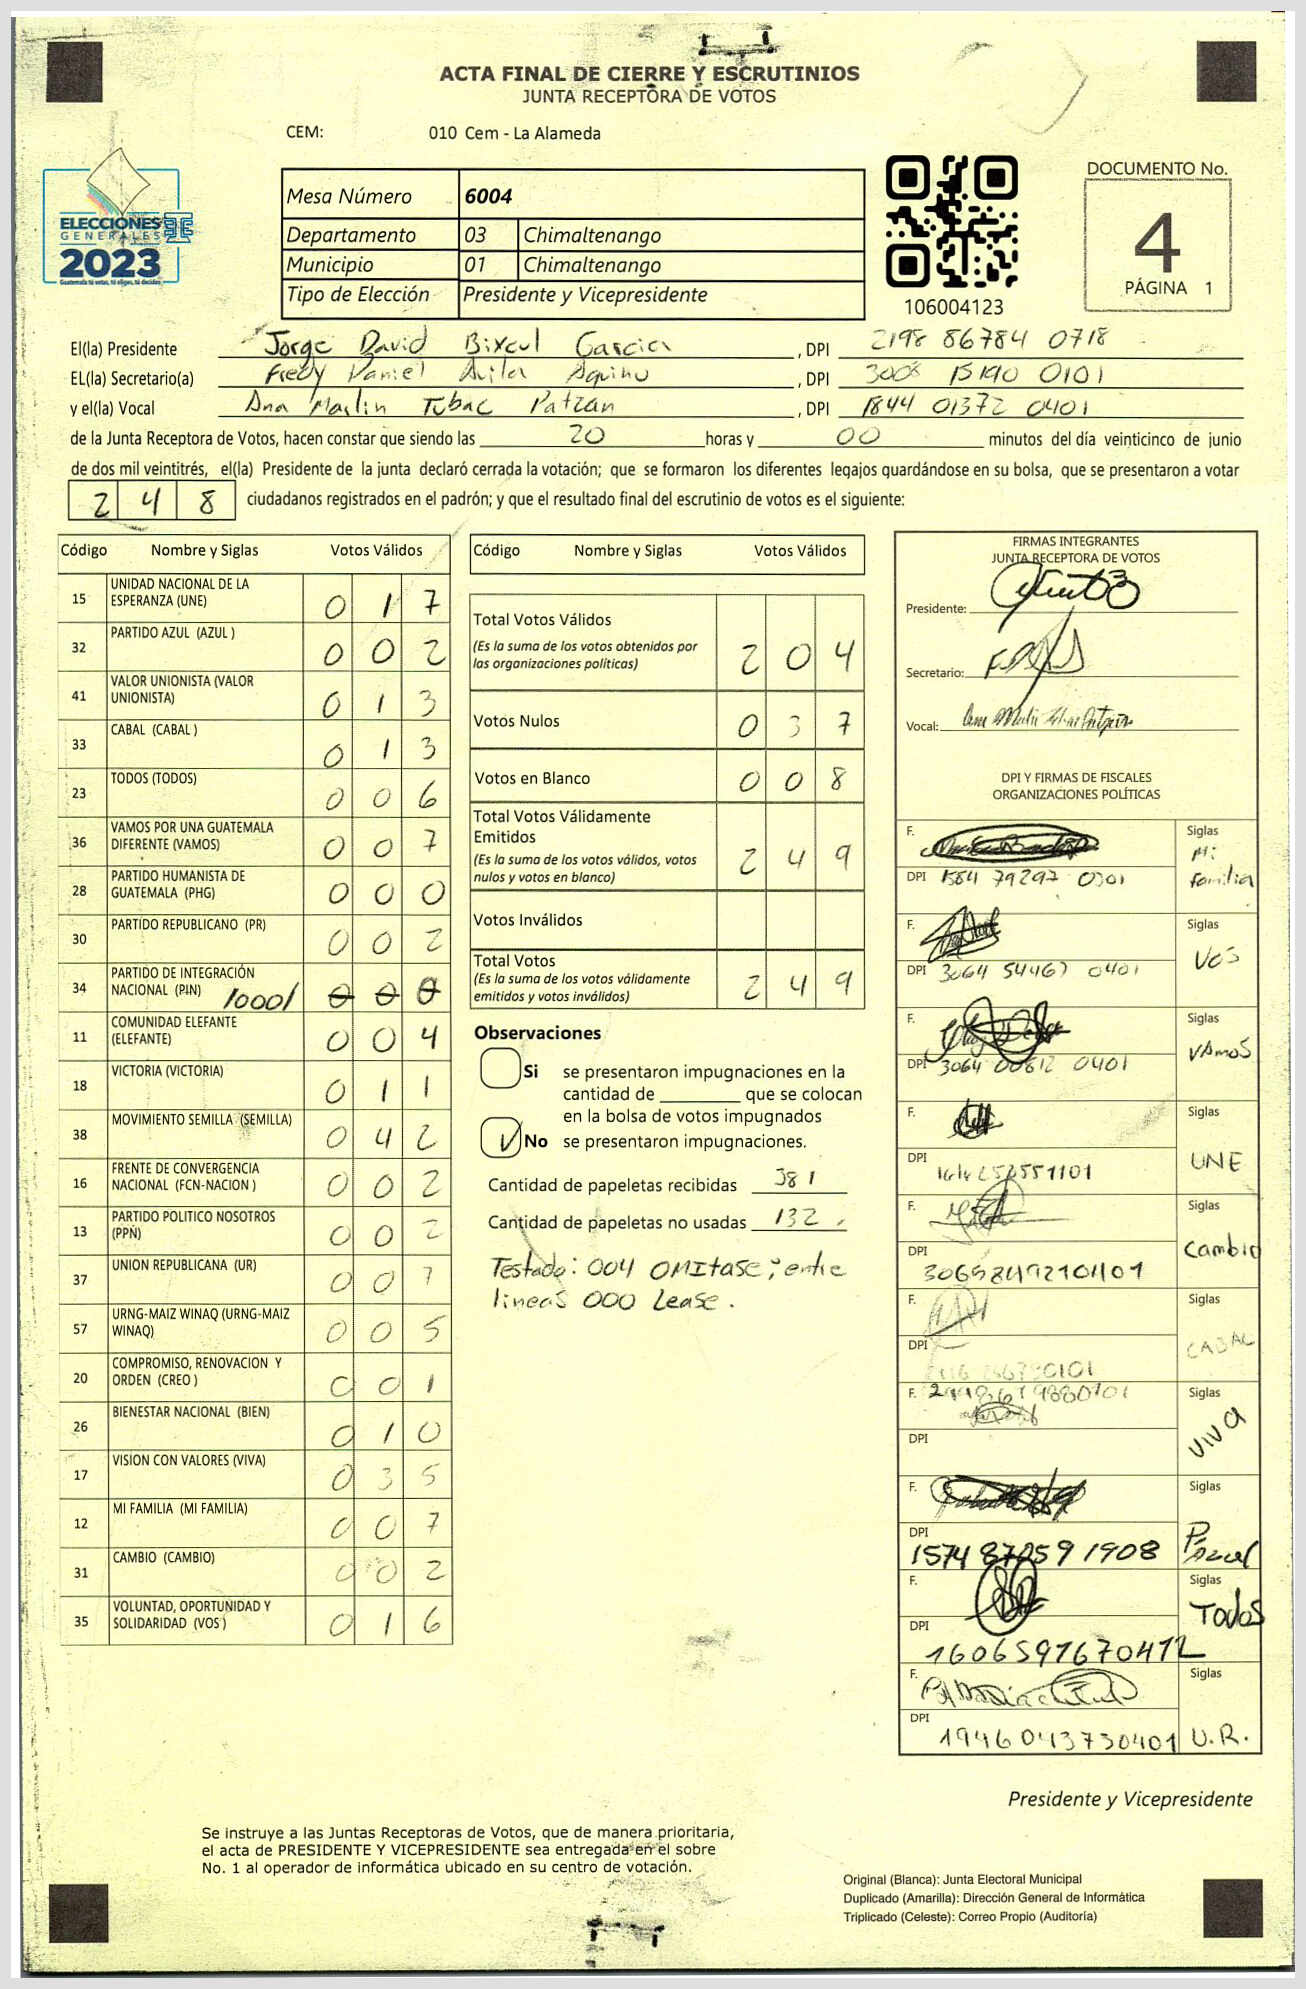 ACTA FINAL DE CIERRE Y ESCRUTINIOS
JUNTA RECEPTORA DE VOTOS
CEM: 010 Cem - La Alameda
ELECCIONES
GENERALES
2023
Guatemala tú votas, tú eliges, tú decides
Mesa Número 6004
Departamento 03 Chimaltenango
Municipio 01 Chimaltenango
Tipo de Elección Presidente y Vicepresidente
106004123
DOCUMENTO No.
4
PÁGINA 1
El(la) Presidente Jorge David Bixcul Garcia , DPI 2198 86784 0718
EL(la) Secretario(a) Fredy Daniel Avila Aquino , DPI 3008 15190 0101
y el(la) Vocal Ana Marlin Tubac Patzan , DPI 1844 01372 0401
de la Junta Receptora de Votos, hacen constar que siendo las 20 horas y 00 minutos del día veinticinco de junio
de dos mil veintitrés, el(la) Presidente de la junta declaró cerrada la votación; que se formaron los diferentes legajos guardándose en su bolsa, que se presentaron a votar
248 ciudadanos registrados en el padrón; y que el resultado final del escrutinio de votos es el siguiente:
Código Nombre y Siglas Votos Válidos
15 UNIDAD NACIONAL DE LA ESPERANZA (UNE) 0 1 7
32 PARTIDO AZUL (AZUL ) 0 0 2
41 VALOR UNIONISTA (VALOR UNIONISTA) 0 1 3
33 CABAL (CABAL ) 0 1 3
23 TODOS (TODOS) 0 0 6
36 VAMOS POR UNA GUATEMALA DIFERENTE (VAMOS) 0 0 7
28 PARTIDO HUMANISTA DE GUATEMALA (PHG) 0 0 0
30 PARTIDO REPUBLICANO (PR) 0 0 2
34 PARTIDO DE INTEGRACIÓN NACIONAL (PIN) /000/ 0 0 0
11 COMUNIDAD ELEFANTE (ELEFANTE) 0 0 4
18 VICTORIA (VICTORIA) 0 1 1
38 MOVIMIENTO SEMILLA (SEMILLA) 0 4 2
16 FRENTE DE CONVERGENCIA NACIONAL (FCN-NACION ) 0 0 2
13 PARTIDO POLITICO NOSOTROS (PPN) 0 0 2
37 UNION REPUBLICANA (UR) 0 0 7
57 URNG-MAIZ WINAQ (URNG-MAIZ WINAQ) 0 0 5
20 COMPROMISO, RENOVACION Y ORDEN (CREO ) 0 0 1
26 BIENESTAR NACIONAL (BIEN) 0 1 0
17 VISION CON VALORES (VIVA) 0 3 5
12 MI FAMILIA (MI FAMILIA) 0 0 7
31 CAMBIO (CAMBIO) 0 0 2
35 VOLUNTAD, OPORTUNIDAD Y SOLIDARIDAD (VOS ) 0 1 6
Código Nombre y Siglas Votos Válidos
Total Votos Válidos 2 0 4
(Es la suma de los votos obtenidos por
las organizaciones políticas)
Votos Nulos 0 3 7
Votos en Blanco 0 0 8
Total Votos Válidamente
Emitidos 2 4 9
(Es la suma de los votos válidos, votos
nulos y votos en blanco)
Votos Inválidos
Total Votos 2 4 9
(Es la suma de los votos válidamente
emitidos y votos inválidos)
Observaciones
Si se presentaron impugnaciones en la
cantidad de ________ que se colocan
en la bolsa de votos impugnados
No se presentaron impugnaciones.
Cantidad de papeletas recibidas 381
Cantidad de papeletas no usadas 132
Testado: 004 OMItase; entre
lineas 000 Lease.
FIRMAS INTEGRANTES
JUNTA RECEPTORA DE VOTOS
Presidente:
Secretario:
Vocal:
DPI Y FIRMAS DE FISCALES
ORGANIZACIONES POLÍTICAS
F. Siglas Mi familia
DPI 1584 79297 0301
F. Siglas VOS
DPI 3064 54467 0401
F. Siglas VAMOS
DPI 3064 00612 0401
F. Siglas UNE
DPI
F. Siglas Cambio
DPI 3065849210401
F. Siglas CABAL
DPI
F. Siglas VIVA
DPI
F. Siglas P. Azul
DPI 1574 87059 1908
F. Siglas Todos
DPI 1606591670412
F. Siglas U.R.
DPI 1946043730401
Presidente y Vicepresidente
Se instruye a las Juntas Receptoras de Votos, que de manera prioritaria,
el acta de PRESIDENTE Y VICEPRESIDENTE sea entregada en el sobre
No. 1 al operador de informática ubicado en su centro de votación.
Original (Blanca): Junta Electoral Municipal
Duplicado (Amarilla): Dirección General de Informática
Triplicado (Celeste): Correo Propio (Auditoría)